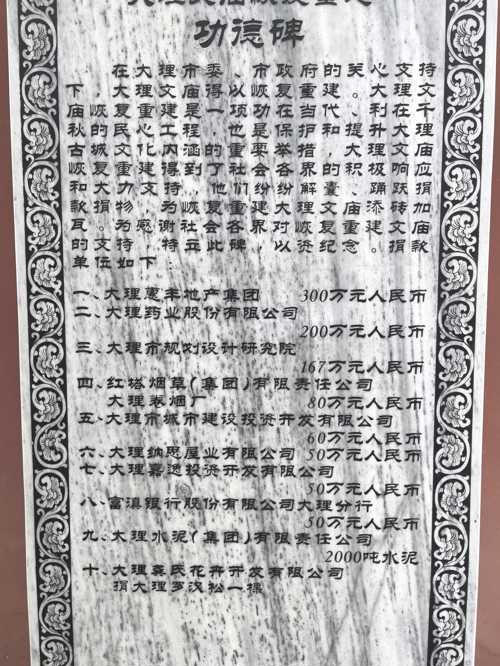 大理文庙恢复重建
功德碑
在大理市委、市政府的关心支持
下，大理文庙得以恢复重建。大理文
庙恢复重建是一项功在当代、利在千
秋的民心工程，也是保护、提升大理
古城文化内涵的重要举措。大理文庙
恢复重建得到了社会各界的积极响应
和大力支持，他们纷纷解囊、踊跃捐
款捐物，为恢复重建大理文庙添砖加
瓦。为感谢社会各界对文庙恢复重建
的支持，特立此碑，以资纪念。捐款
单位如下
一、大理惠丰地产集团 300万元人民币
二、大理药业股份有限公司
200万元人民币
三、大理市规划设计研究院
167万元人民币
四、红塔烟草(集团)有限责任公司
大理卷烟厂 80万元人民币
五、大理市城市建设投资开发有限公司
60万元人民币
六、大理纳思屋业有限公司 50万元人民币
七、大理嘉逸投资开发有限公司
50万元人民币
八、富滇银行股份有限公司大理分行
50万元人民币
九、大理水泥(集团)有限责任公司
2000吨水泥
十、大理龚氏花卉开发有限公司
捐大理罗汉松一棵